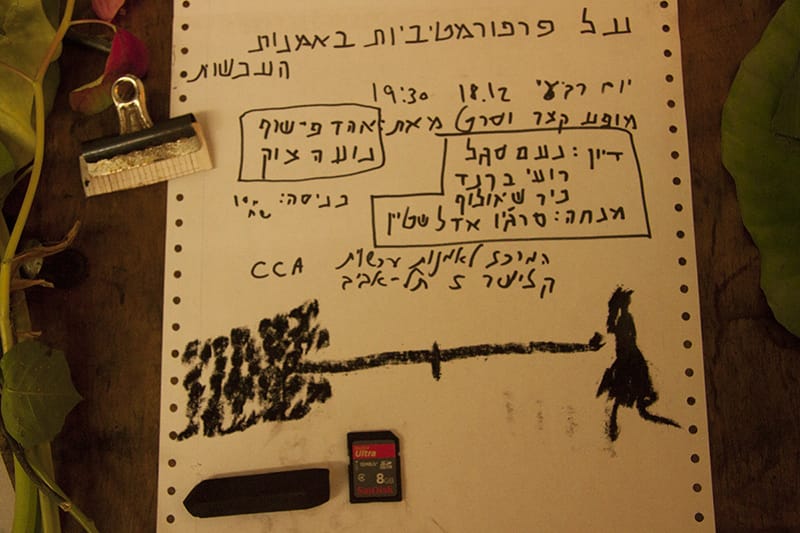 על פרפורמטיביות באמנות
העכשווית
יום רביעי 18.12 19:30
מופע קצר וסרט מאת: אהד פישוף
נועה צוק
דיון: נעם סגל
רועי ברנד
ניר שאולוף
מנחה: סרג'יו אדלשטין
כניסה: 10 שח
המרכז לאמנות עכשוית CCA
קלישר 5 תל-אביב
SanDisk
Ultra
4
8GB
SanDisk